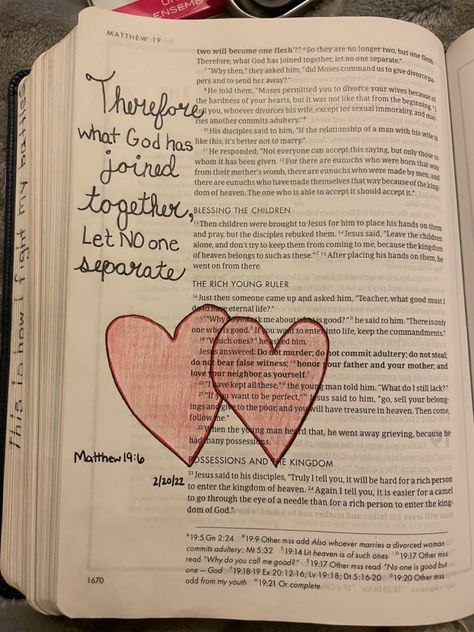 ENSEMB
MATTHEW 19
Therefore
what God has
joined
together,
Let NO one
separate
Matthew 19:6
2/20/22
This is how I fight my battles
two will become one flesh? ⁶ So they are no longer two, but one flesh.
Therefore, what God has joined together, let no one separate."
⁷ "Why then," they asked him, "did Moses command us to give divorce pa-
pers and to send her away?"
⁸ He told them, "Moses permitted you to divorce your wives because of
the hardness of your hearts, but it was not like that from the beginning. ⁹ I
tell you, whoever divorces his wife, except for sexual immorality, and mar-
ries another commits adultery."
¹⁰ His disciples said to him, "If the relationship of a man with his wife is
like this, it's better not to marry."
¹¹ He responded, "Not everyone can accept this saying, but only those to
whom it has been given. ¹² For there are eunuchs who were born that way
from their mother's womb, there are eunuchs who were made by men, and
there are eunuchs who have made themselves that way because of the king-
dom of heaven. The one who is able to accept it should accept it."
BLESSING THE CHILDREN
¹³ Then children were brought to Jesus for him to place his hands on them
and pray, but the disciples rebuked them. ¹⁴ Jesus said, "Leave the children
alone, and don't try to keep them from coming to me, because the kingdom
of heaven belongs to such as these." ¹⁵ After placing his hands on them, he
went on from there.
THE RICH YOUNG RULER
¹⁶ Just then someone came up and asked him, "Teacher, what good must I
do to have eternal life?"
¹⁷ "Why do you ask me about what is good?" he said to him. "There is only
one who is good. If you want to enter into life, keep the commandments."
¹⁸ "Which ones?" he asked him.
Jesus answered: Do not murder; do not commit adultery; do not steal;
do not bear false witness; ¹⁹ honor your father and your mother; and
love your neighbor as yourself.
²⁰ "I have kept all these," the young man told him. "What do I still lack?"
²¹ "If you want to be perfect," Jesus said to him, "go, sell your belong-
ings and give to the poor, and you will have treasure in heaven. Then come,
follow me."
²² When the young man heard that, he went away grieving, because he
had many possessions.
POSSESSIONS AND THE KINGDOM
²³ Jesus said to his disciples, "Truly I tell you, it will be hard for a rich person
to enter the kingdom of heaven. ²⁴ Again I tell you, it is easier for a camel
to go through the eye of a needle than for a rich person to enter the king-
dom of God."
19:5 Gn 2:24 19:9 Other mss add Also whoever marries a divorced woman
commits adultery; Mt 5:32 19:14 Lit heaven is of such ones 19:17 Other mss
read "Why do you call me good?" 19:17 Other mss read "No one is good but
one — God 19:18-19 Ex 20:12-16; Lv 19:18; Dt 5:16-20 19:20 Other mss
add from my youth 19:21 Or complete
1670